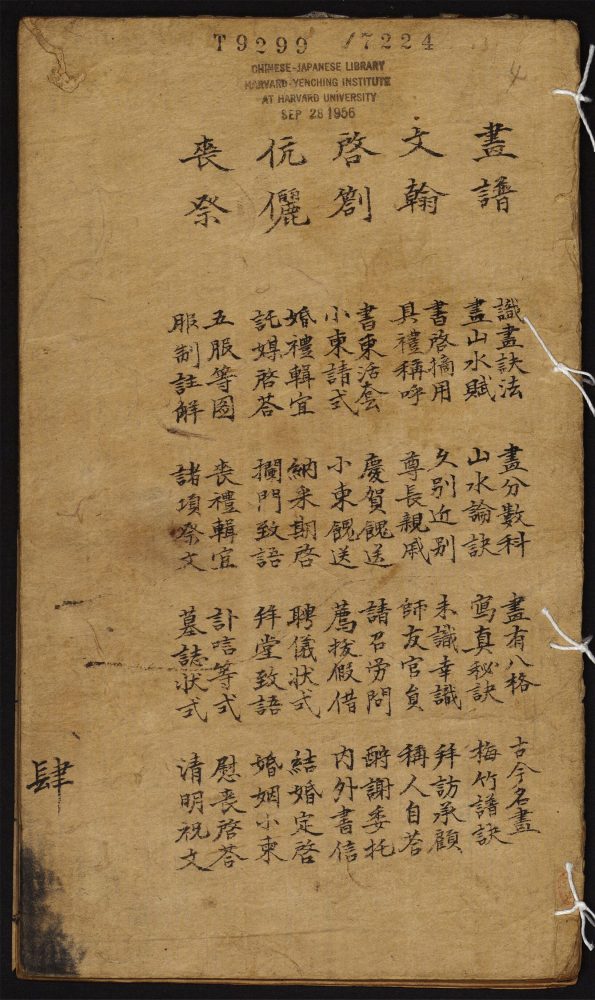 T9299 /7224
CHINESE-JAPANESE LIBRARY
HARVARD-YENCHING INSTITUTE
AT HARVARD UNIVERSITY
SEP 28 1956
4
畫譜
文翰
啓劄
伉儷
喪祭
識畫訣法 畫分數科 畫有八格 古今名畫
畫山水賦 山水論訣 寫真秘訣 梅竹譜訣
書啓摘用 久別近别 未識幸識 拜訪承顧
具禮稱呼 尊長親戚 師友官負 稱人自荅
書柬活套 慶賀餽送 請召勞問 酧謝委托
小柬請式 小柬餽送 薦拔假借 内外書信
婚禮輯宜 納采期啓 聘儀狀式 結婚定啓
託媒啓荅 攔門致語 拜堂致語 婚姻小柬
五服等图 喪禮輯宜 訃唁等式 慰喪啓荅
服制註解 諸項祭文 墓誌狀式 清明祝文
肆